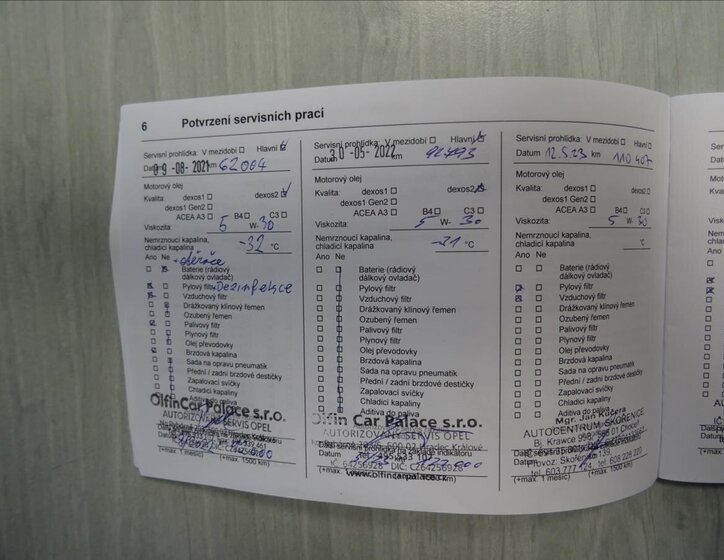 6 Potvrzení servisních prací
Servisní prohlídka: V mezidobí Hlavní
Datum 09-08-2021 km 62004
Motorový olej
Kvalita: dexos1 dexos2
dexos1 Gen2
ACEA A3 B4 C3
Viskozita: 5 W- 30
Nemrznoucí kapalina,
chladicí kapalina -32 °C
Ano Ne
Baterie (rádiový
dálkový ovladač)
Pylový filtr Dezinfekce
Vzduchový filtr
Drážkovaný klínový řemen
Ozubený řemen
Palivový filtr
Plynový filtr
Olej převodovky
Brzdová kapalina
Sada na opravu pneumatik
Přední / zadní brzdové destičky
Zapalovací svíčky
Chladicí kapaliny
Aditiva do paliva
OlfinCar Palace s.r.o.
AUTORIZOVANÝ SERVIS OPEL
Datum
(+max. 1 měsíc) (+max. 1500 km)
Servisní prohlídka: V mezidobí Hlavní
Datum 30-05-2022 km
Motorový olej
Kvalita: dexos1 dexos2
dexos1 Gen2
ACEA A3 B4 C3
Viskozita: 5 W- 30
Nemrznoucí kapalina,
chladicí kapalina -31 °C
Ano Ne
Baterie (rádiový
dálkový ovladač)
Pylový filtr
Vzduchový filtr
Drážkovaný klínový řemen
Ozubený řemen
Palivový filtr
Plynový filtr
Olej převodovky
Brzdová kapalina
Sada na opravu pneumatik
Přední / zadní brzdové destičky
Zapalovací svíčky
Chladicí kapaliny
Aditiva do paliva
Olfin Car Palace s.r.o.
AUTORIZOVANÝ SERVIS OPEL
Králové
IČ: 64256928 DIČ: CZ64256928
www.olfincarpalace.cz
Servisní prohlídka: V mezidobí Hlavní
Datum 12.5.23 km 110 407
Motorový olej
Kvalita: dexos1 dexos2
dexos1 Gen2
ACEA A3 B4 C3
Viskozita: 5 W- 30
Nemrznoucí kapalina,
chladicí kapalina °C
Ano Ne
Baterie (rádiový
dálkový ovladač)
Pylový filtr
Vzduchový filtr
Drážkovaný klínový řemen
Ozubený řemen
Palivový filtr
Plynový filtr
Olej převodovky
Brzdová kapalina
Sada na opravu pneumatik
Přední / zadní brzdové destičky
Zapalovací svíčky
Chladicí kapaliny
Aditiva do paliva
Mgr. Jan Kučera
AUTOCENTRUM SKOŘENICE
Bj. Krawce 998, Choceň
Provoz: Skořenice 139,
(+max. 1 měsíc) (+max. 1500 km)